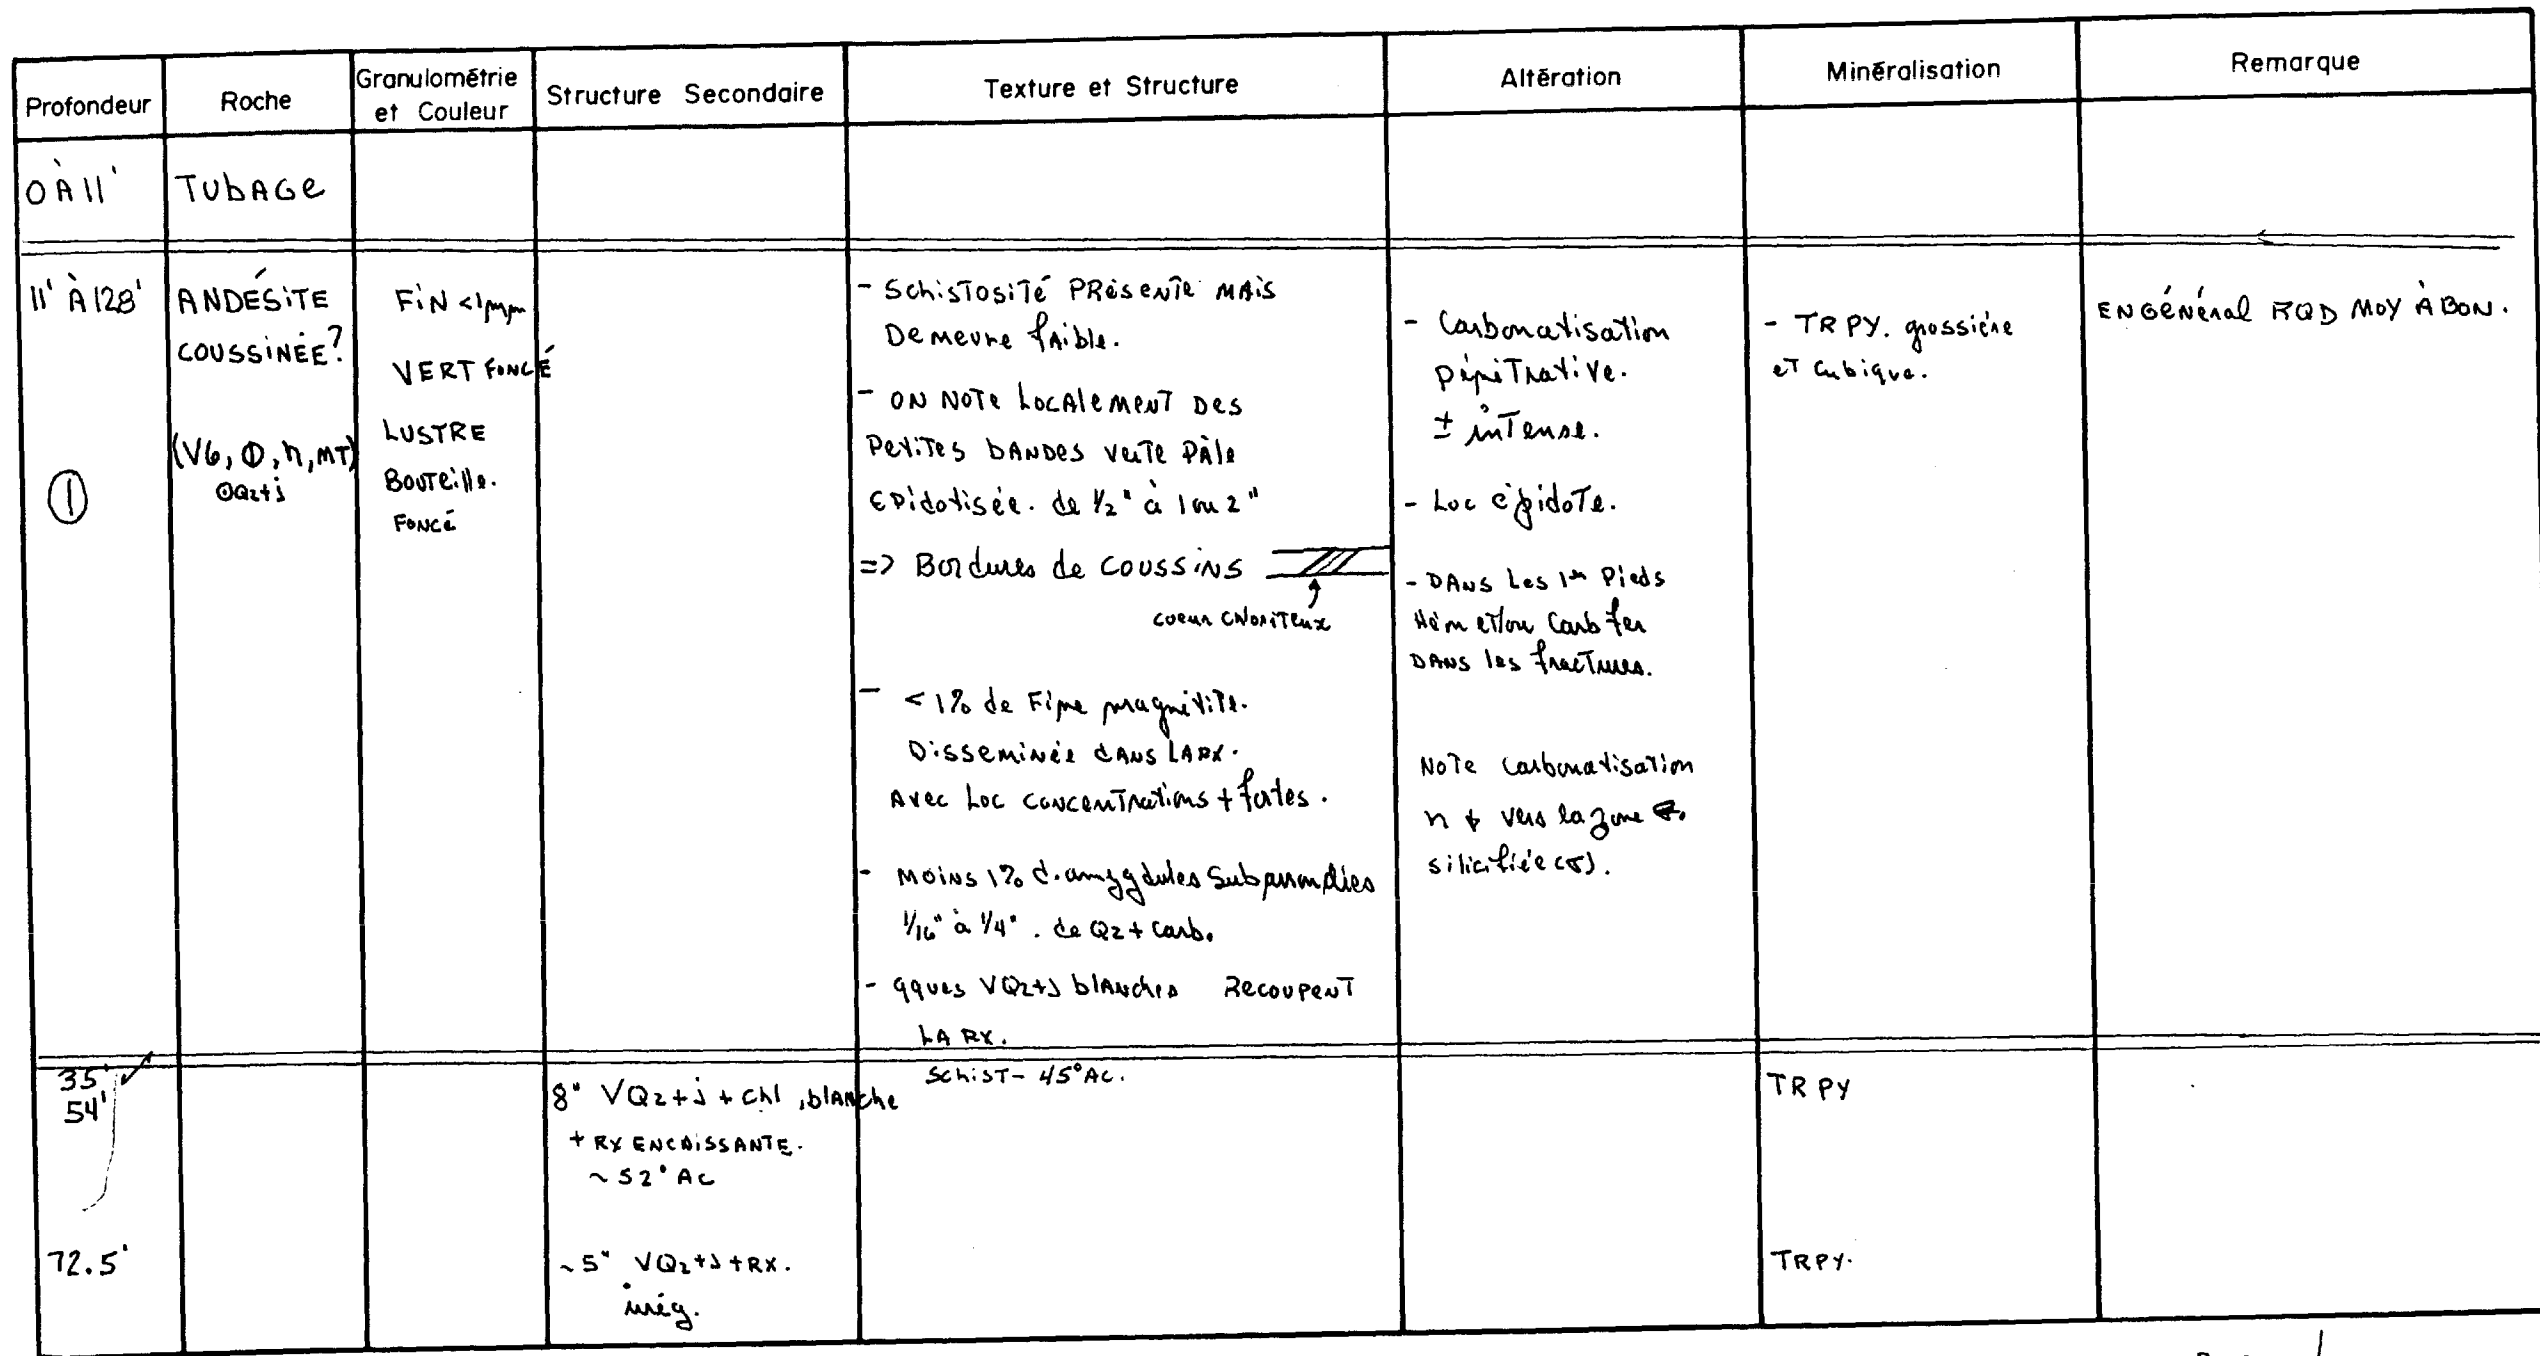 Profondeur
Roche
Granulométrie
et Couleur
Structure Secondaire
Texture et Structure
Altération
Minéralisation
Remarque
0 À 11'
TUBAGE
11' À 128'
①
ANDÉSITE
COUSSINÉE?
(V6, Φ, n, MT)
Qz+j
FIN <1mm
VERT FONCÉ
LUSTRE
Bouteille.
FONCÉ
- Schistosité Présente MAIS
Demeure faible.
- ON NOTE Localement Des
Petites bandes verte Pâle
Epidotisée. de 1/2" à 1 ou 2"
=> Bordures de COUSSINS
coeur chloriteux
- <1% de Fine magnétite.
Disseminée dans LA RX.
Avec Loc concentrations + fortes.
- Moins 1% d'amygdules Subarrondies
1/16" à 1/4". de Qz + carb.
- qques VQz+j blanches Recoupent
LA RX.
- Carbonatisation
pénétrative.
± intense.
- Loc épidote.
- DANS Les 1er Pieds
Hém et/ou Carb fer
DANS les fractures.
Note carbonatisation
vers la zone
silicifiée (σ).
- TR PY. grossière
et cubique.
EN GÉNÉRAL RQD MOY À BON.
35'
Schist - 45° AC.
54'
8" VQz+j + chl, blanche
+ RX ENCAISSANTE.
~ 52° AC
TR PY
72.5'
~5" VQz+j + RX.
irrég.
TR PY.